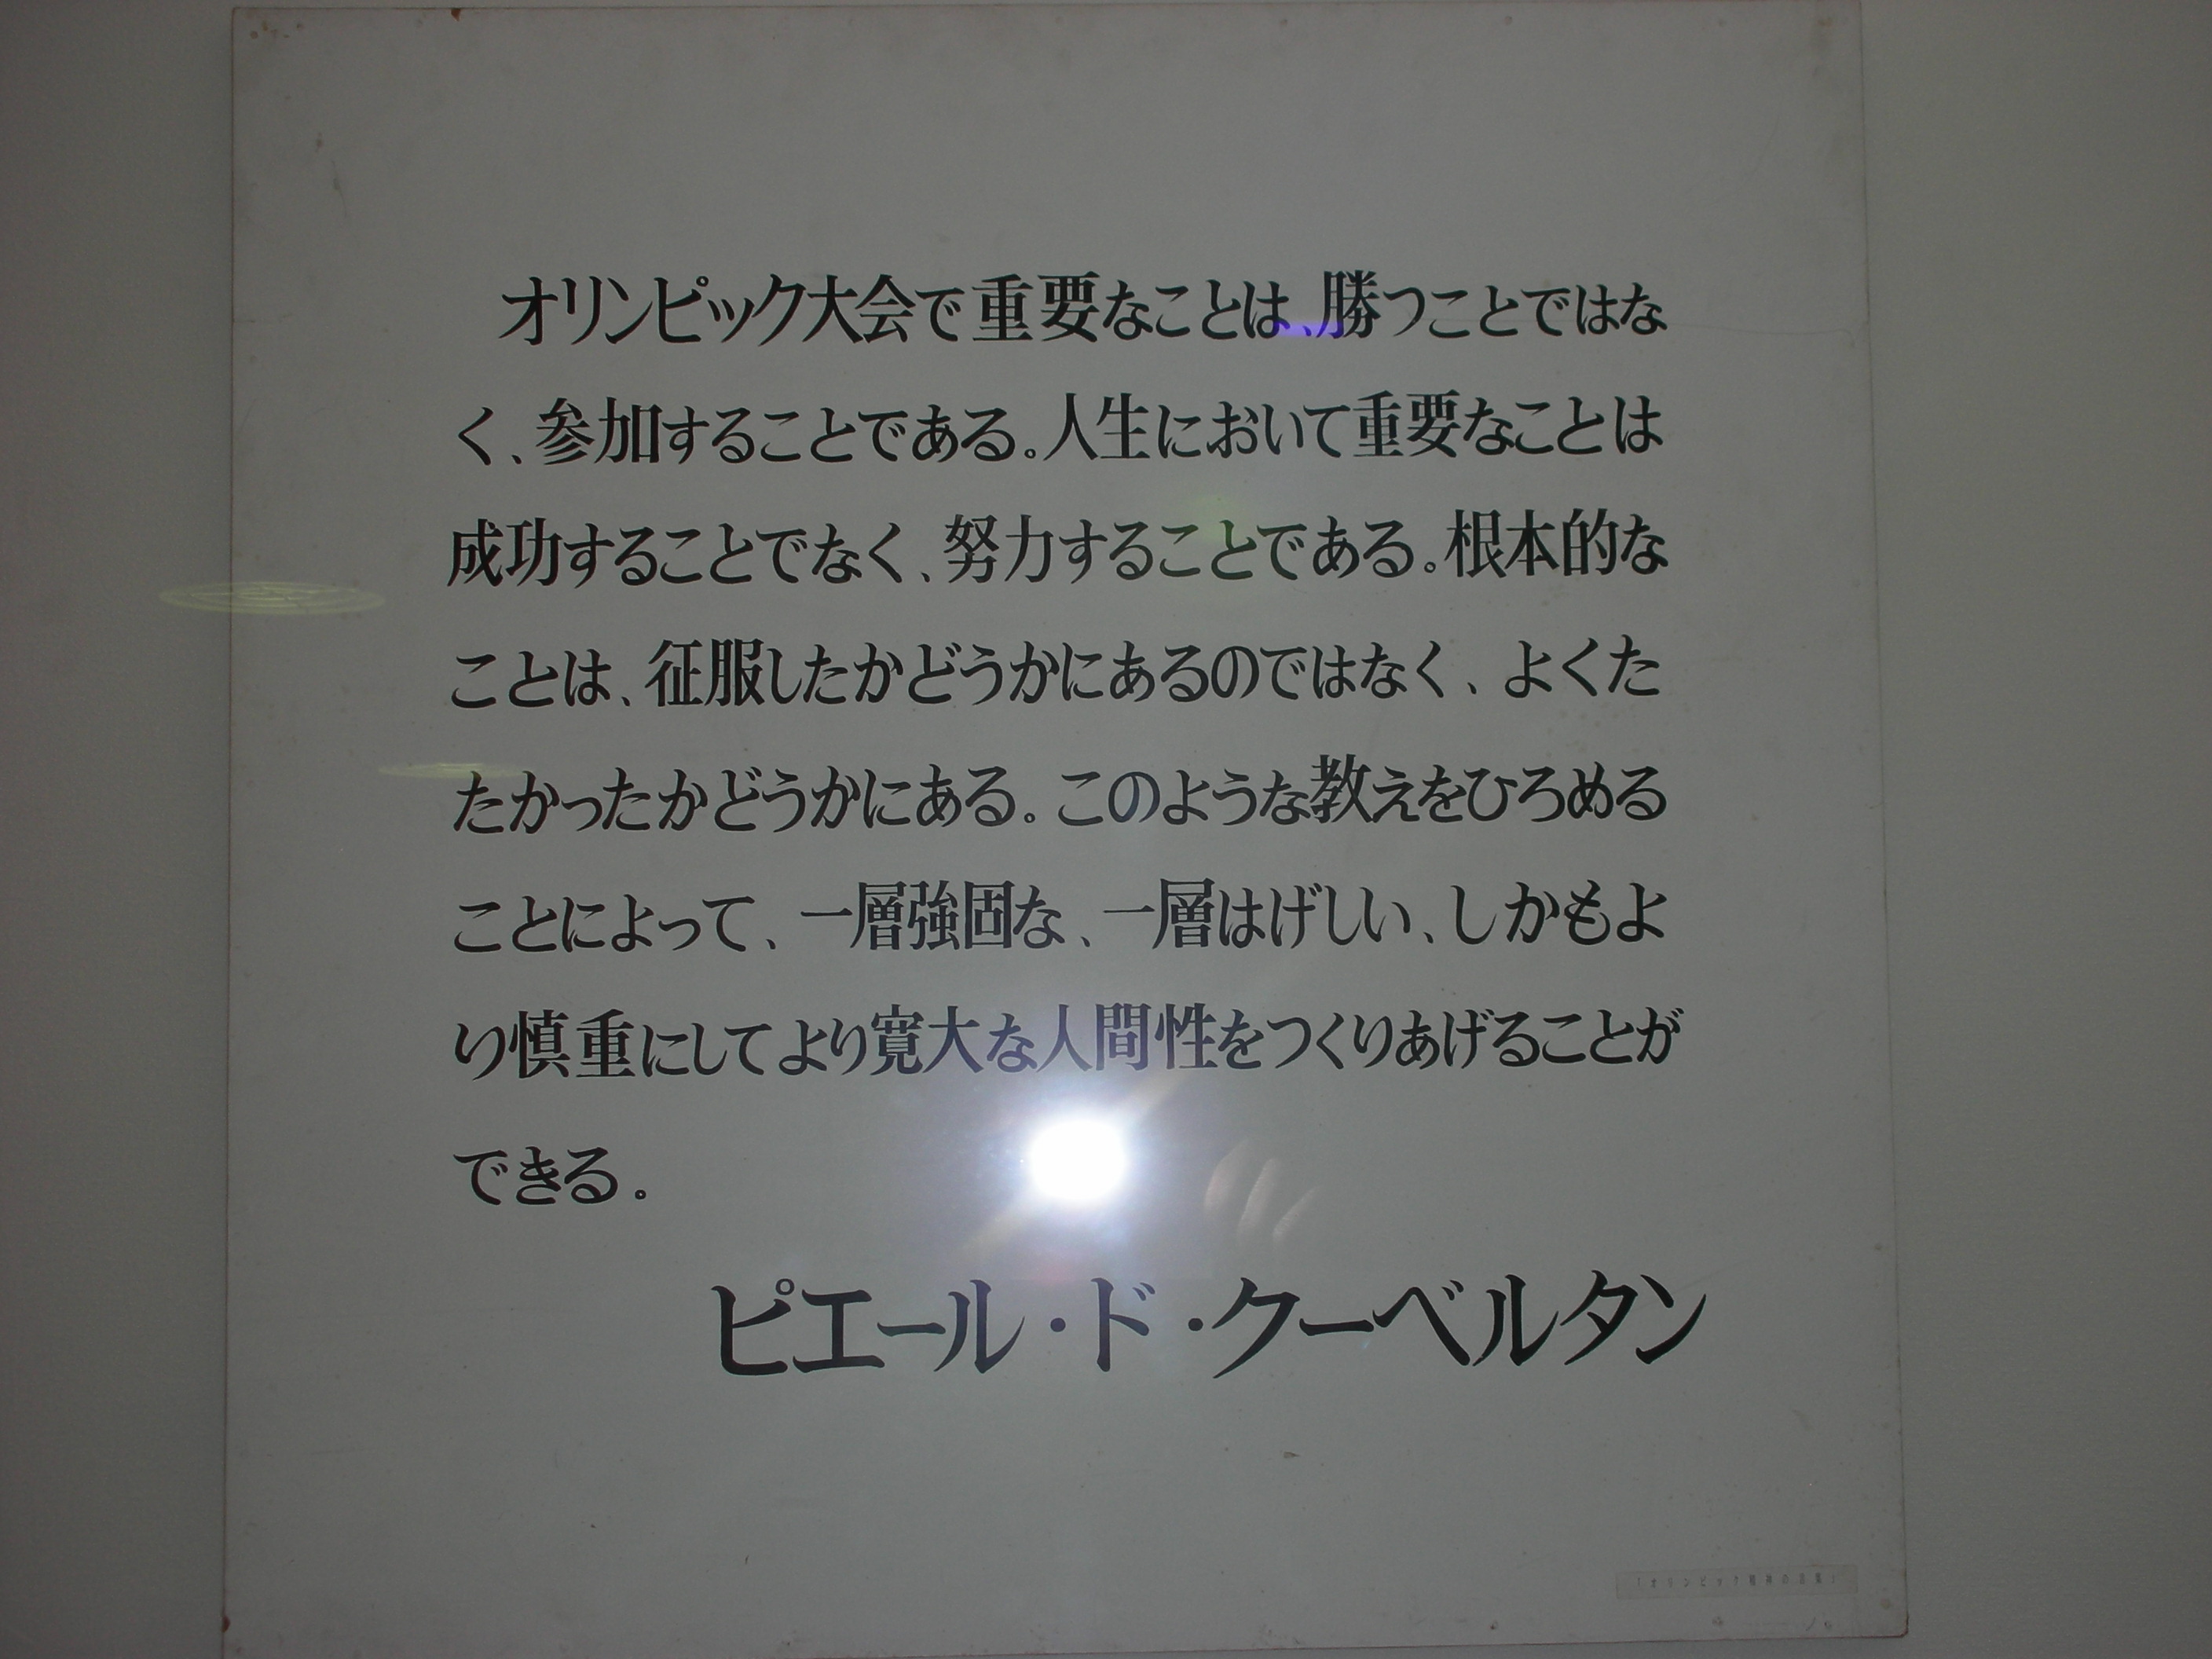 オリンピック大会で重要なことは、勝つことではな
く、参加することである。人生において重要なことは
成功することでなく、努力することである。根本的な
ことは、征服したかどうかにあるのではなく、よくた
たかったかどうかにある。このような教えをひろめる
ことによって、一層強固な、一層はげしい、しかもよ
り慎重にしてより寛大な人間性をつくりあげることが
できる。
ピエール・ド・クーベルタン